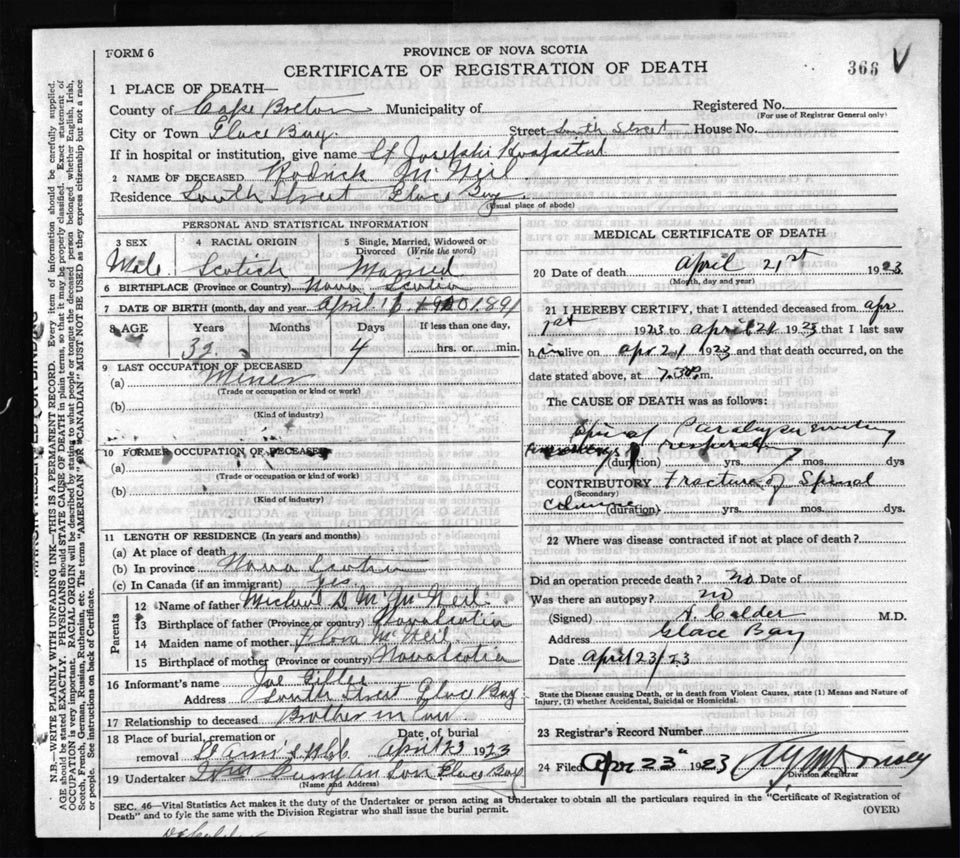 FORM 6
PROVINCE OF NOVA SCOTIA
CERTIFICATE OF REGISTRATION OF DEATH
366 V
1 PLACE OF DEATH—
County of Cape Breton Municipality of Registered No.
(For use of Registrar General only)
City or Town Glace Bay. Street South Street House No.
If in hospital or institution, give name St Josephs Hospital
2 NAME OF DECEASED Rodrick McNeil
Residence South Street Glace Bay
(Usual place of abode)
PERSONAL AND STATISTICAL INFORMATION
3 SEX 4 RACIAL ORIGIN 5 Single, Married, Widowed or Divorced (Write the word)
Male. Scotich Married
6 BIRTHPLACE (Province or Country) Nova Scotia
7 DATE OF BIRTH (month, day and year) April 1891
8 AGE Years Months Days If less than one day,
32 4 hrs. or min.
9 LAST OCCUPATION OF DECEASED
(a) Miner
(Trade or occupation or kind or work)
(b)
(Kind of industry)
10 FORMER OCCUPATION OF DECEASED
(a)
(Trade or occupation or kind of work)
(b)
(Kind of industry)
11 LENGTH OF RESIDENCE (In years and months)
(a) At place of death
(b) In province Nova Scotia
(c) In Canada (if an immigrant) yes
Parents
12 Name of father Micheal D. M. McNeil
13 Birthplace of father (Province or country) Nova Scotia
14 Maiden name of mother Flora McNeil
15 Birthplace of mother (Province or country) Nova Scotia
16 Informant's name Joe
Address South Street Glace Bay
17 Relationship to deceased Brother in Law
18 Place of burial, cremation or removal Date of burial
St Ann's April 23 1923
19 Undertaker Son Glace Bay
(Name and Address)
MEDICAL CERTIFICATE OF DEATH
20 Date of death April 21st 1923
(Month, day and year)
21 I HEREBY CERTIFY, that I attended deceased from apr
1st 1923 to april 21 1923 that I last saw
him alive on apr 21 1923 and that death occurred, on the
date stated above, at 7.30 p.m.
The CAUSE OF DEATH was as follows:
Spinal Paralysis
(duration) yrs. mos. dys
CONTRIBUTORY Fracture of Spinal
(Secondary)
Column (duration) yrs. mos. dys.
22 Where was disease contracted if not at place of death?
Did an operation precede death? no Date of
Was there an autopsy? no
(Signed) A Calder M.D.
Address Glace Bay
Date April 23/23
State the Disease causing Death, or in death from Violent Causes, state (1) Means and Nature of
Injury, (2) whether Accidental, Suicidal or Homicidal.
23 Registrar's Record Number
24 Filed Apr 23" 1923
Division Registrar
SEC. 46—Vital Statistics Act makes it the duty of the Undertaker or person acting as Undertaker to obtain all the particulars required in the "Certificate of Registration of
Death" and to fyle the same with the Division Registrar who shall issue the burial permit.
(OVER)
N.B.—WRITE PLAINLY WITH UNFADING INK—THIS IS A PERMANENT RECORD. Every item of information should be carefully supplied.
AGE should be stated EXACTLY. PHYSICIANS should STATE CAUSE OF DEATH in plain terms, so that it may be properly classified. Exact statement of
OCCUPATION is very important. RACIAL ORIGIN will be described by stating to what people or tongue the deceased person belonged whether English, Irish,
Scotch, French, German, Russian, Ruthenian, etc. The terms "AMERICAN" OR "CANADIAN" MUST NOT BE USED as they express citizenship but not a race
or people. See instructions on back of Certificate.